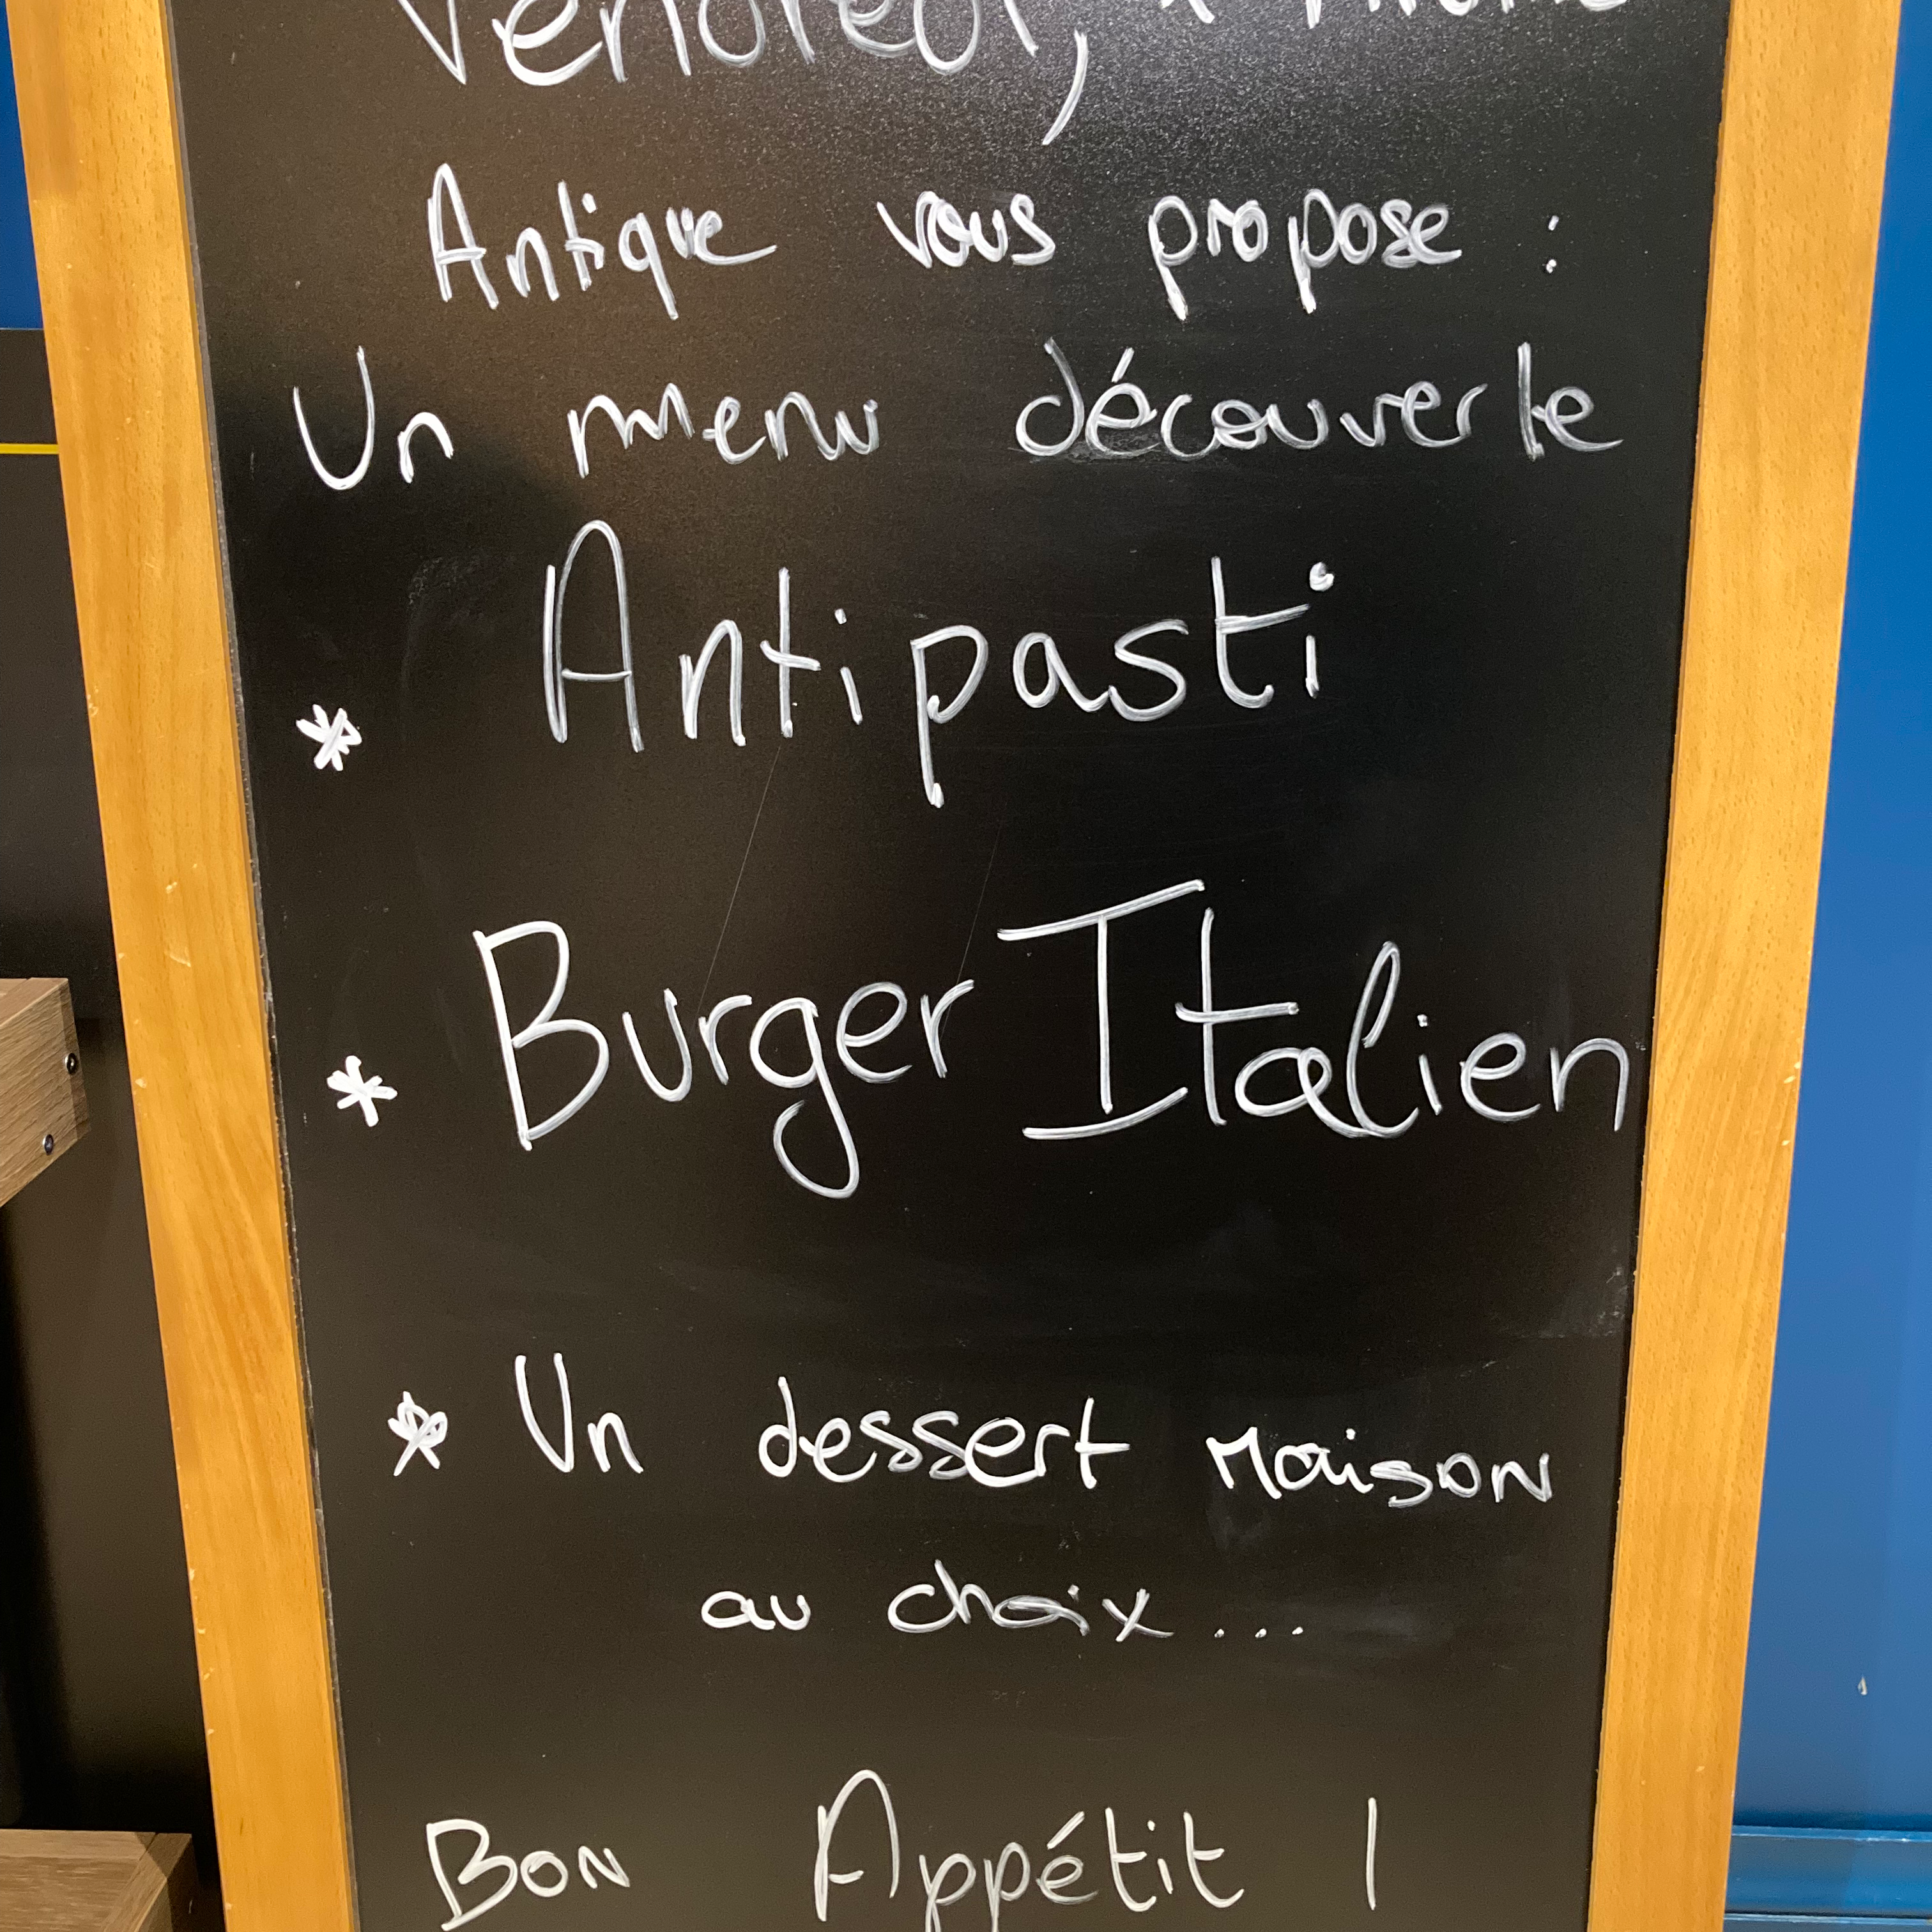 Vendredi,
Antique vous propose :
Un menu découverte
* Antipasti
* Burger Italien
* Un dessert Maison
au choix...
Bon Appétit !